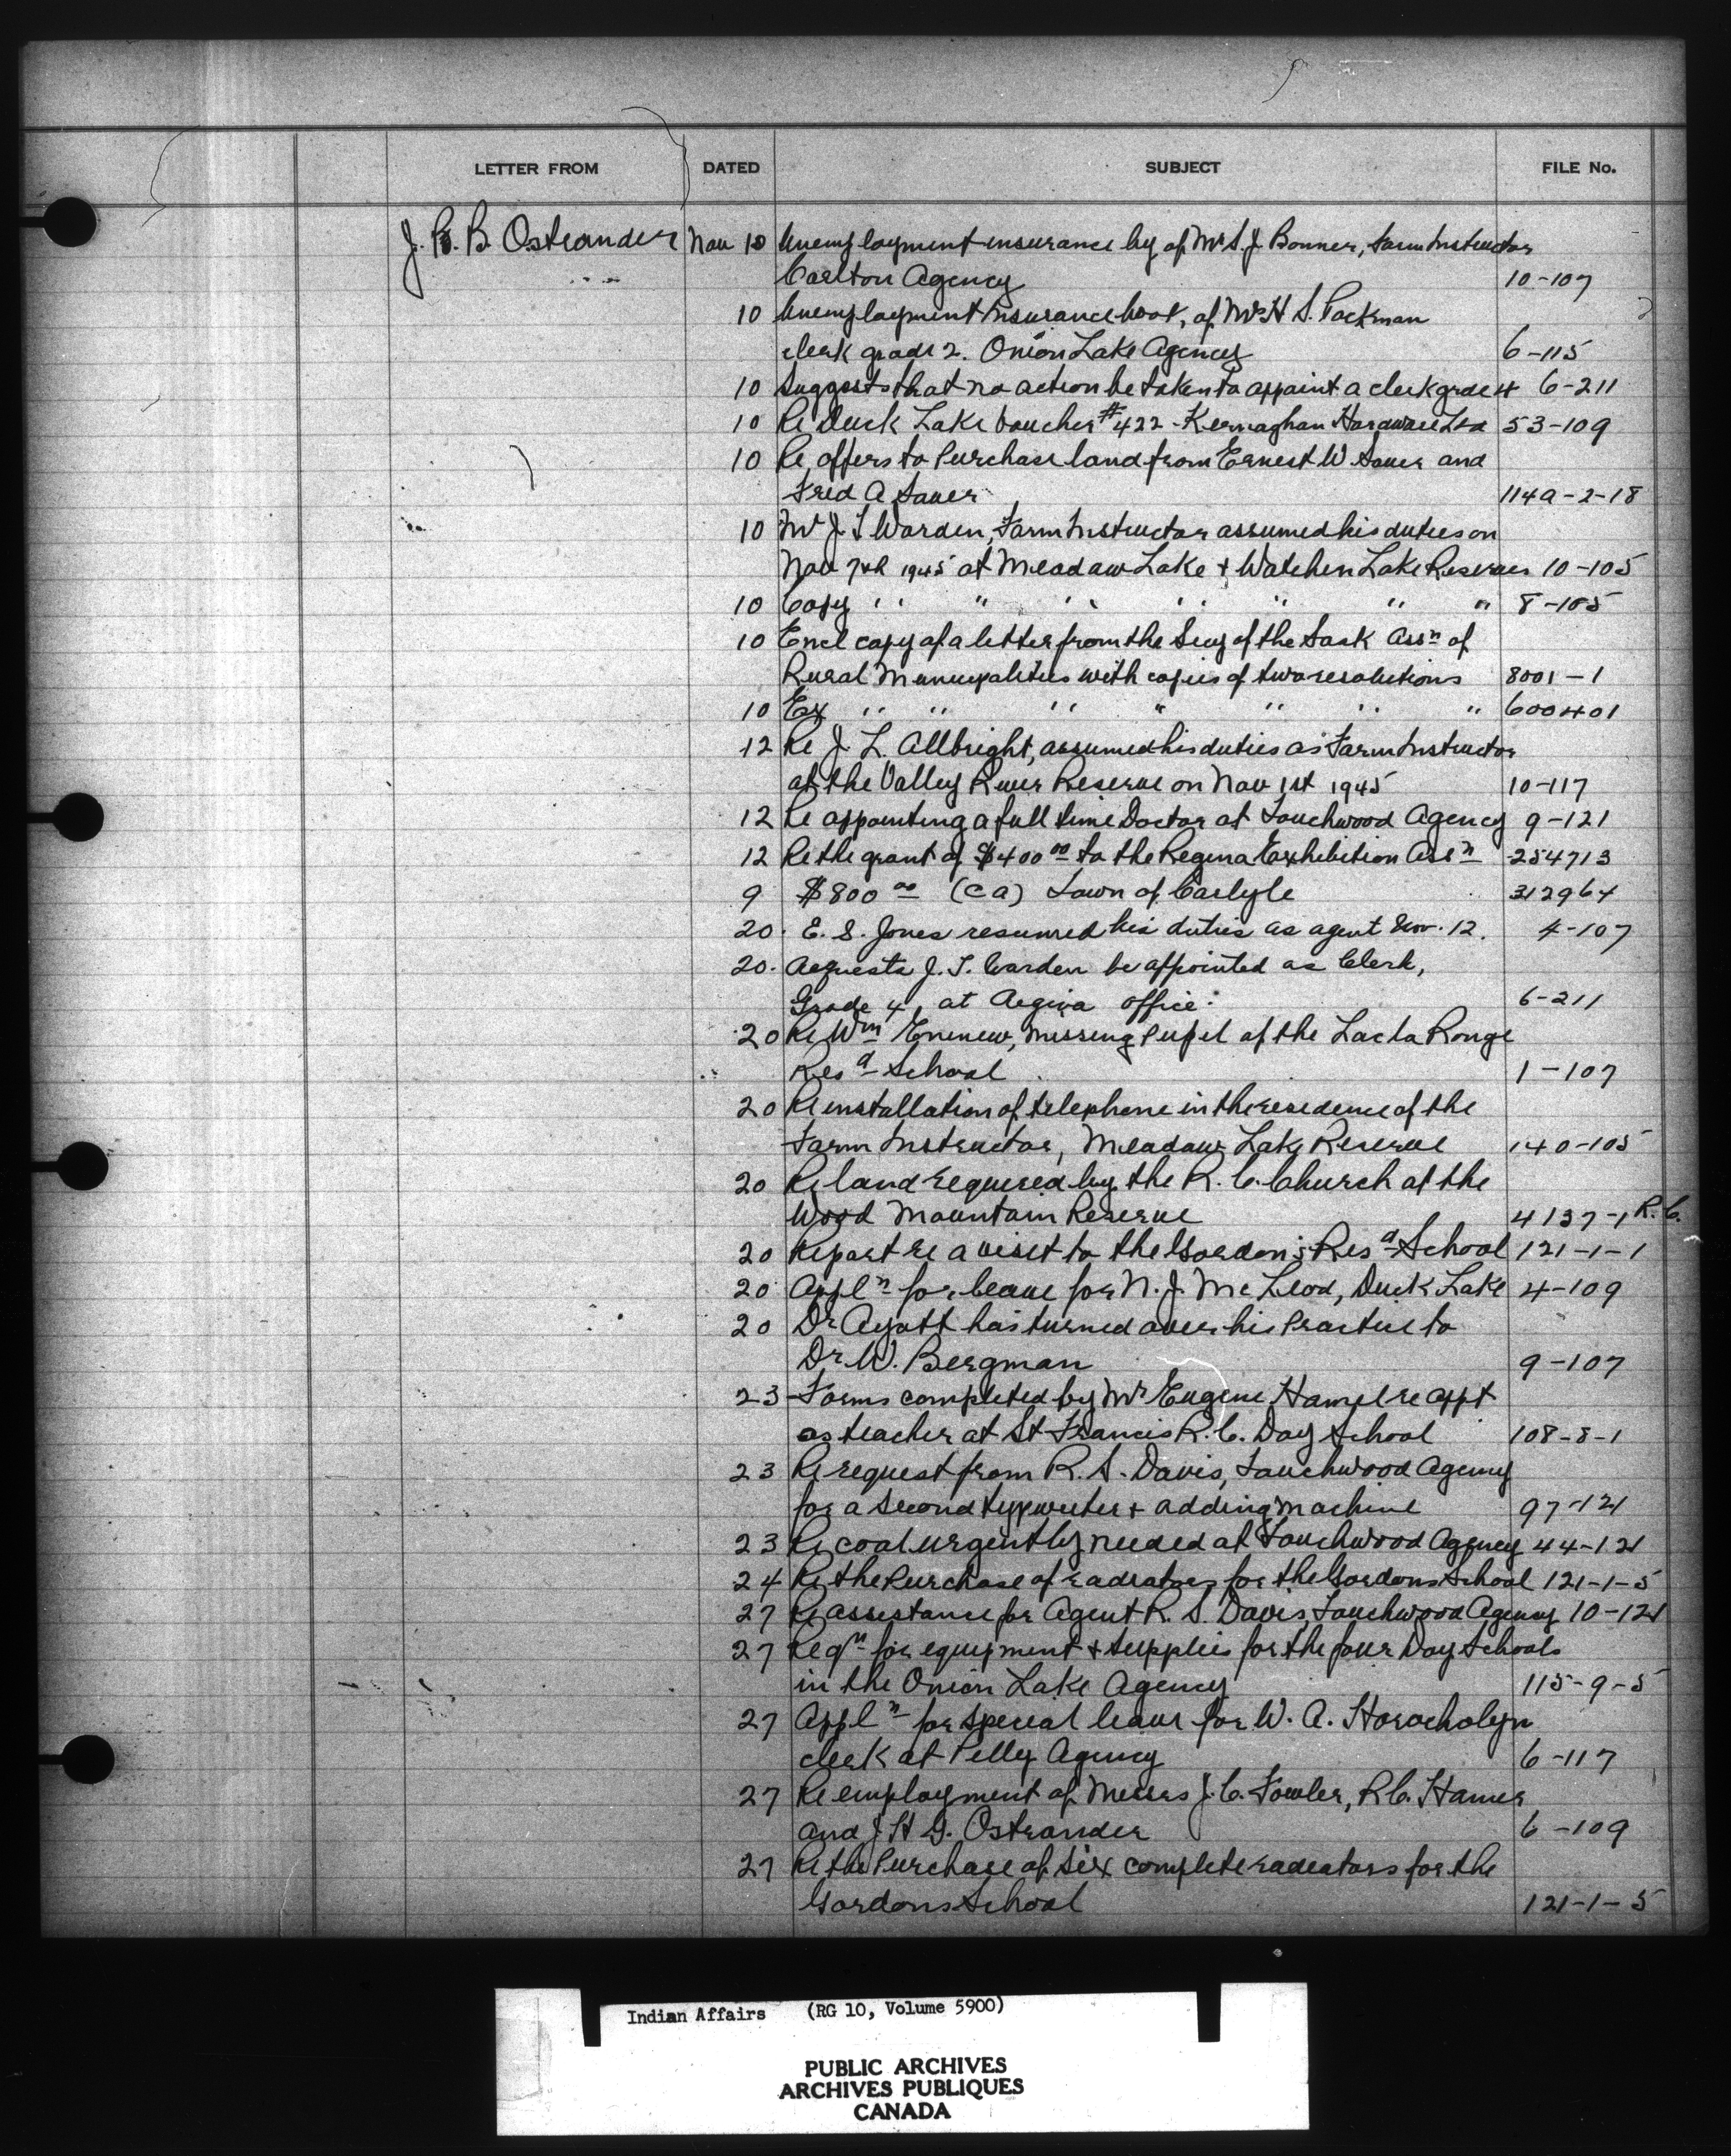 LETTER FROM DATED SUBJECT FILE No.
J. P. B. Ostrander Nov 10 Unemployment insurance by of Mr S. J. Bonner, Farm Instructor
Carlton Agency 10-107
10 Unemployment Insurance book, of Mr H S. Packman
clerk grade 2. Onion Lake Agency 6-115
10 Suggests that no action be taken to appoint a clerk grade 4 6-211
10 Re Duck Lake Voucher #422 - Kernaghan Hardware Ltd 53-109
10 Re offers to Purchase land from Ernest W Sauer and
Fred A Sauer 114A-2-18
10 Mr J T Warden, Farm Instructor assumed his duties on
Nov 7th 1945 at Meadow Lake + Watehen Lake Reserves 10-105
10 Copy " " " " " " " 8-105
10 Encl copy of a letter from the Secy of the Sask Assn of
Rural Municipalities with copies of two resolutions 8001-1
10 Ex " " " " " " " 600401
12 Re J. L. Allbright, assumed his duties as Farm Instructor
at the Valley River Reserve on Nov 1st 1945 10-117
12 Re appointing a full time Doctor at Touchwood Agency 9-121
12 Re the grant of $400 00 to the Regina Exhibition Assn 254713
9 $800 00 (CA) Town of Carlyle 312964
20. E. S. Jones resumed his duties as agent Nov. 12. 4-107
20. Requests J. T. Warden be appointed as Clerk,
Grade 4, at Regina office. 6-211
20 Re Wm Eninew, missing Pupil of the Lac la Ronge
Resd School 1-107
20 Re installation of telephone in the residence of the
Farm Instructor, Meadow Lake Reserve 140-105
20 Re land required by the R. C. Church at the
Wood Mountain Reserve 4137-1 R.C.
20 Report re a visit to the Gordon's Resd School 121-1-1
20 Appln for leave for N. J. McLeod, Duck Lake 4-109
20 Dr Ayott has turned over his Practice to
Dr W. Bergman 9-107
23 Forms completed by Mr Eugene Hamel re appt
as teacher at St Francis R. C. Day School 108-8-1
23 Re request from R. S. Davis, Touchwood Agency
for a second typewriter + adding machine 97-121
23 Re coal urgently needed at Touchwood Agency 44-121
24 Re the Purchase of radiators for the Gordons School 121-1-5
27 Re assistance for Agent R. S. Davis, Touchwood Agency 10-121
27 Reqn for equipment + supplies for the four Day Schools
in the Onion Lake Agency 115-9-5
27 Appln for special leave for W. A. Horocholyn
clerk at Pelly Agency 6-117
27 Re employment of Messrs J. C. Fowler, R C. Hamer
and J. H G. Ostrander 6-109
27 Re the Purchase of six complete radiators for the
Gordons School 121-1-5
Indian Affairs (RG 10, Volume 5900)
PUBLIC ARCHIVES
ARCHIVES PUBLIQUES
CANADA